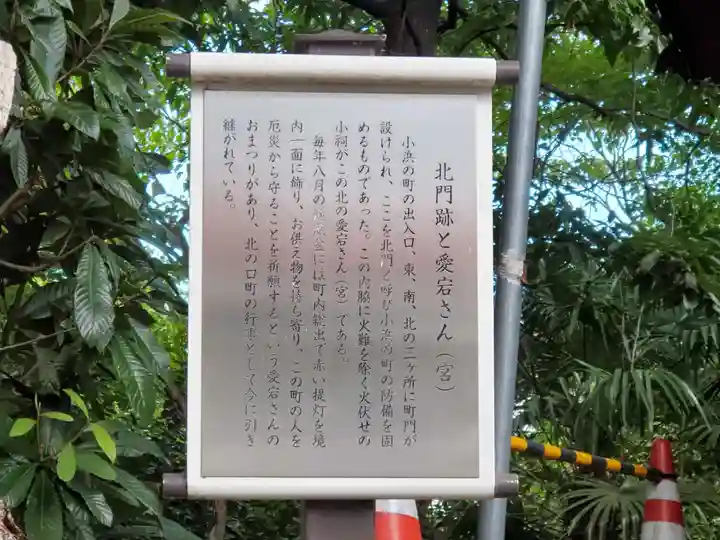 北門跡と愛宕さん（宮）
小浜の町の出入口、東、南、北の三ヶ所に町門が
設けられ、ここを北門と呼び小浜の町の防備を固
めるものであった。この内脇に火難を除く火伏せの
小祠がこの北の愛宕さん（宮）である。
毎年八月の には町内総出で赤い提灯を境
内一面に飾り、お供え物を持ち寄り、この町の人を
厄災から守ることを祈願するという愛宕さんの
おまつりがあり、北の口町の行事として今に引き
継がれている。